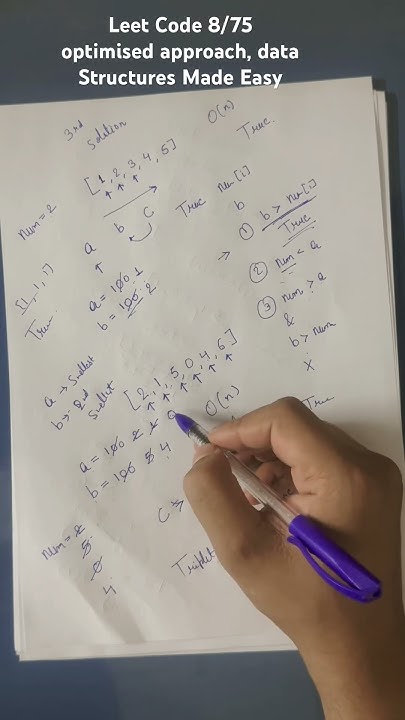 Leet Code 8/75
optimised approach, data
Structures Made Easy
3rd solution
O(n)
[1, 2, 3, 4, 5]
True.
num = 2
a b c
True
num[i]
b
① b > num[i]
True
② num < a
③ num > a
&
b > num
X
[1, 1, 1]
True.
a = 100 1
b = 100 2
a → smallest
b → 2nd smallest
[2, 1, 5, 0, 4, 6]
O(n)
a = 100 2 1 0
b = 100 5 4
num = 2
5
0
4
Triplet